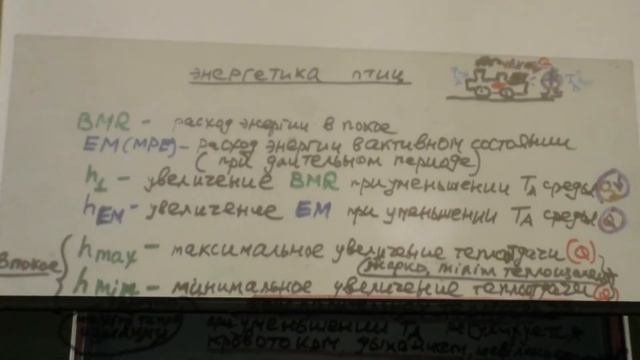 энергетика птиц
BMR - расход энергии в покое
EM (MPE) - расход энергии в активном состоянии
(при длительном периоде)
h₁ - увеличение BMR при уменьшении TA среды
hEM - увеличение EM при уменьшении TA среды
в покое
hmax - максимальное увеличение теплоотдачи (Q)
жарко, minim
hmin - минимальное увеличение теплоотдачи (Q)
при уменьшении TA
кровотоком, дыханием,